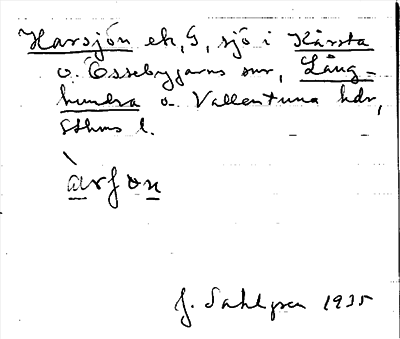 Harsjön ek, G, sjö i Kårsta
o. Össebygarns snr, Lång-
hundra o. Vallentuna hdr,
Sthms l.
àrʃon
J. Sahlgren 1935